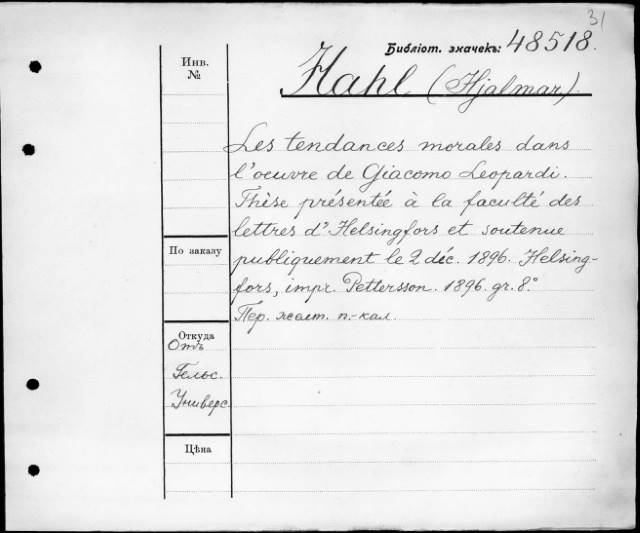 31
Библіот. значекъ: 48518.
Инв.
№
Hahl (Hjalmar).
Les tendances morales dans
l'oeuvre de Giacomo Leopardi.
Thèse présentée à la faculté des
lettres d'Helsingfors et soutenue
publiquement le 2 déc. 1896. Helsing-
fors, impr. Pettersson. 1896. gr. 8.°
Пер. п.-кал.
По заказу
Откуда
Отъ
Гельс.
Универс.
Цѣна